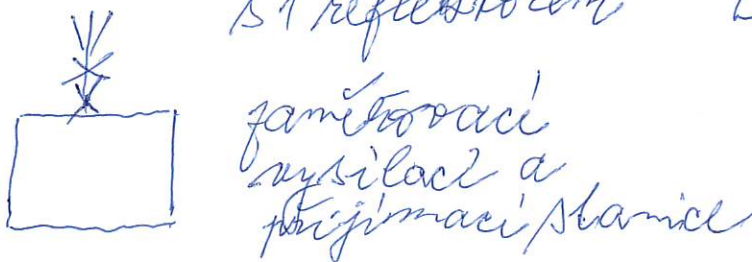 s 1 reflektorem
zaměřovací
vysílací a
přijímací stanice